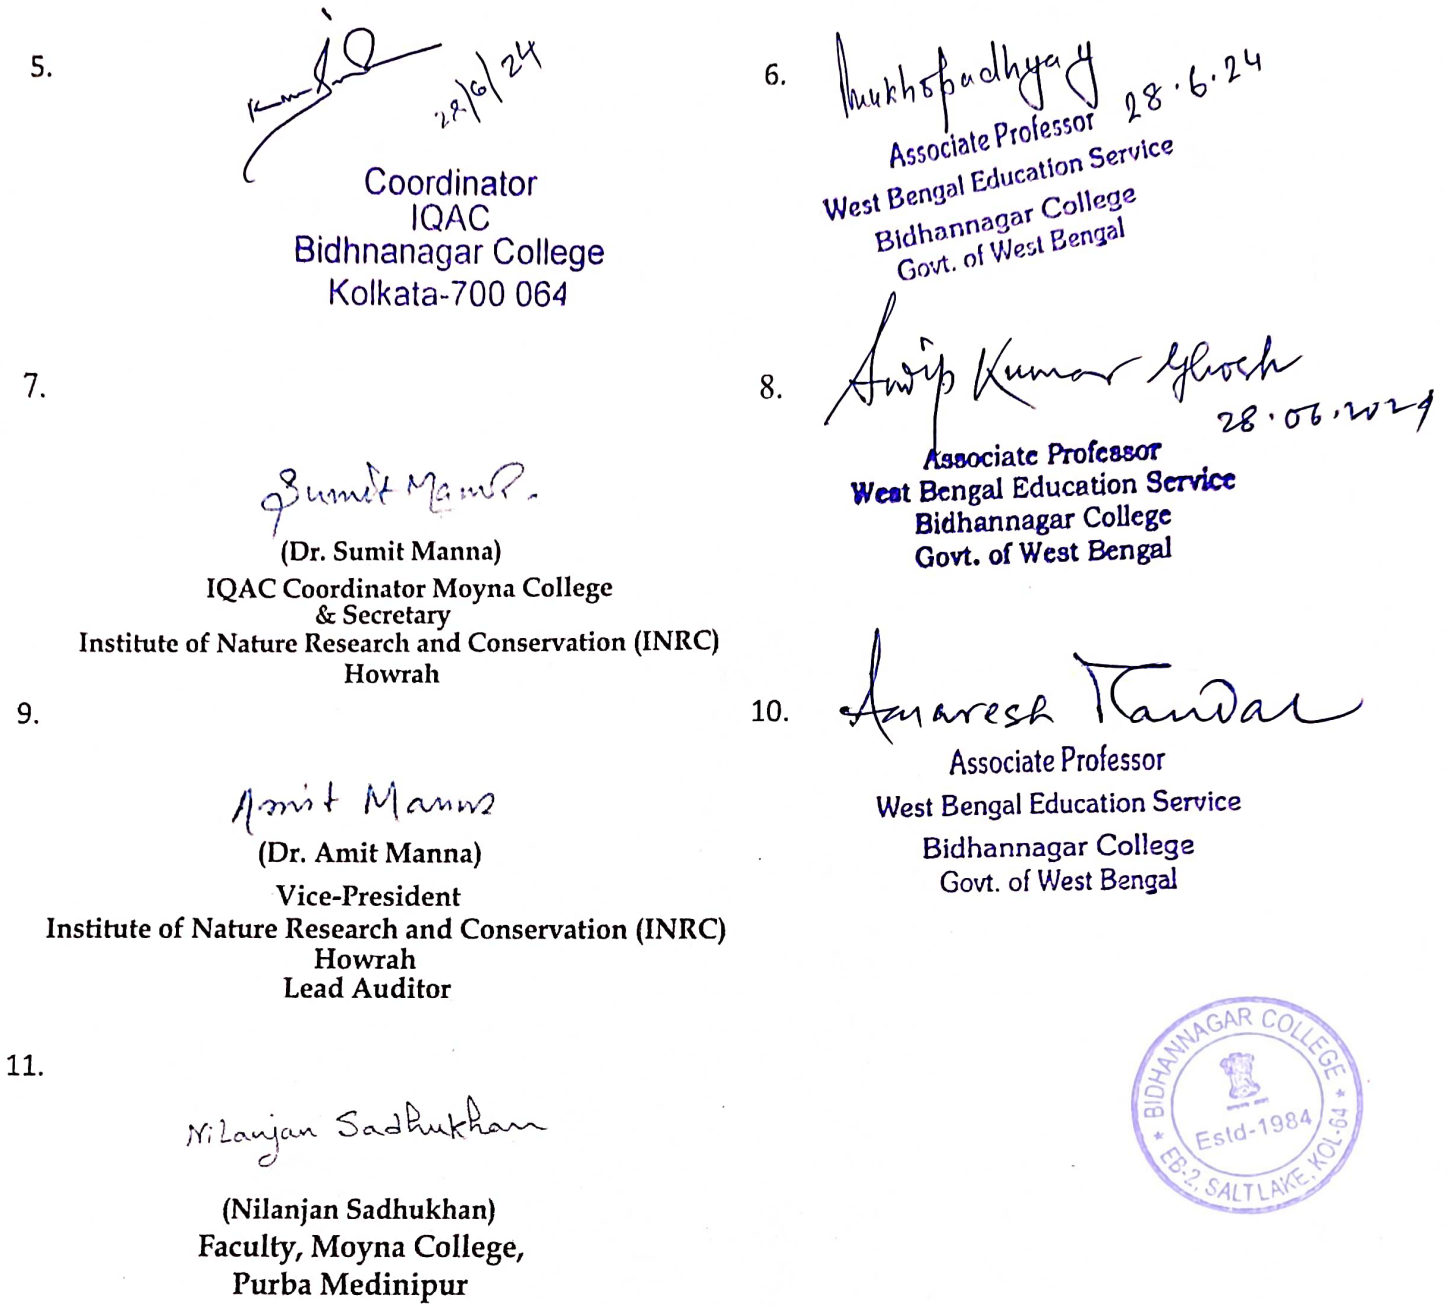 5.
28/6/24
Coordinator
IQAC
Bidhnanagar College
Kolkata-700 064
6.
Mukhopadhyay
28.6.24
Associate Professor
West Bengal Education Service
Bidhannagar College
Govt. of West Bengal
7.
Sumit Manna.
(Dr. Sumit Manna)
IQAC Coordinator Moyna College
& Secretary
Institute of Nature Research and Conservation (INRC)
Howrah
8.
Kumar Ghosh
28.06.2024
Associate Professor
West Bengal Education Service
Bidhannagar College
Govt. of West Bengal
9.
Amit Manna
(Dr. Amit Manna)
Vice-President
Institute of Nature Research and Conservation (INRC)
Howrah
Lead Auditor
10.
Amaresh Mandal
Associate Professor
West Bengal Education Service
Bidhannagar College
Govt. of West Bengal
11.
Nilanjan Sadhukhan
(Nilanjan Sadhukhan)
Faculty, Moyna College,
Purba Medinipur
* BIDHANNAGAR COLLEGE *
Estd-1984
EB-2, SALTLAKE, KOL-64